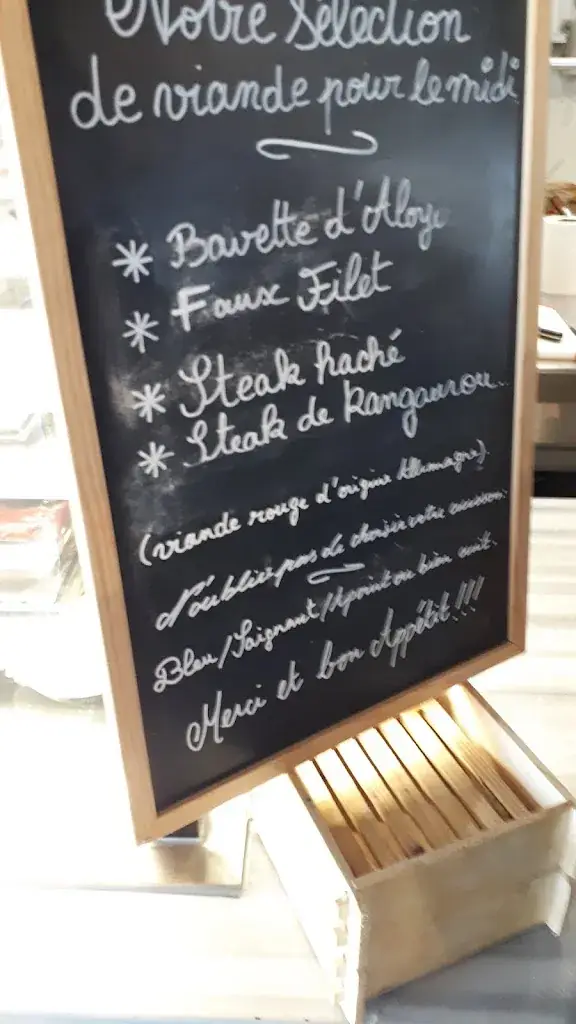 Notre Sélection
de viande pour le midi
* Bavette d'Aloyau
* Faux Filet
* Steak haché
* Steak de Kangourou..
(viande rouge d'origine Allemagne).
N'oubliez pas de choisir votre cuisson:
Bleu/Saignant/Apoint ou bien cuit.
Merci et bon Appétit!!!